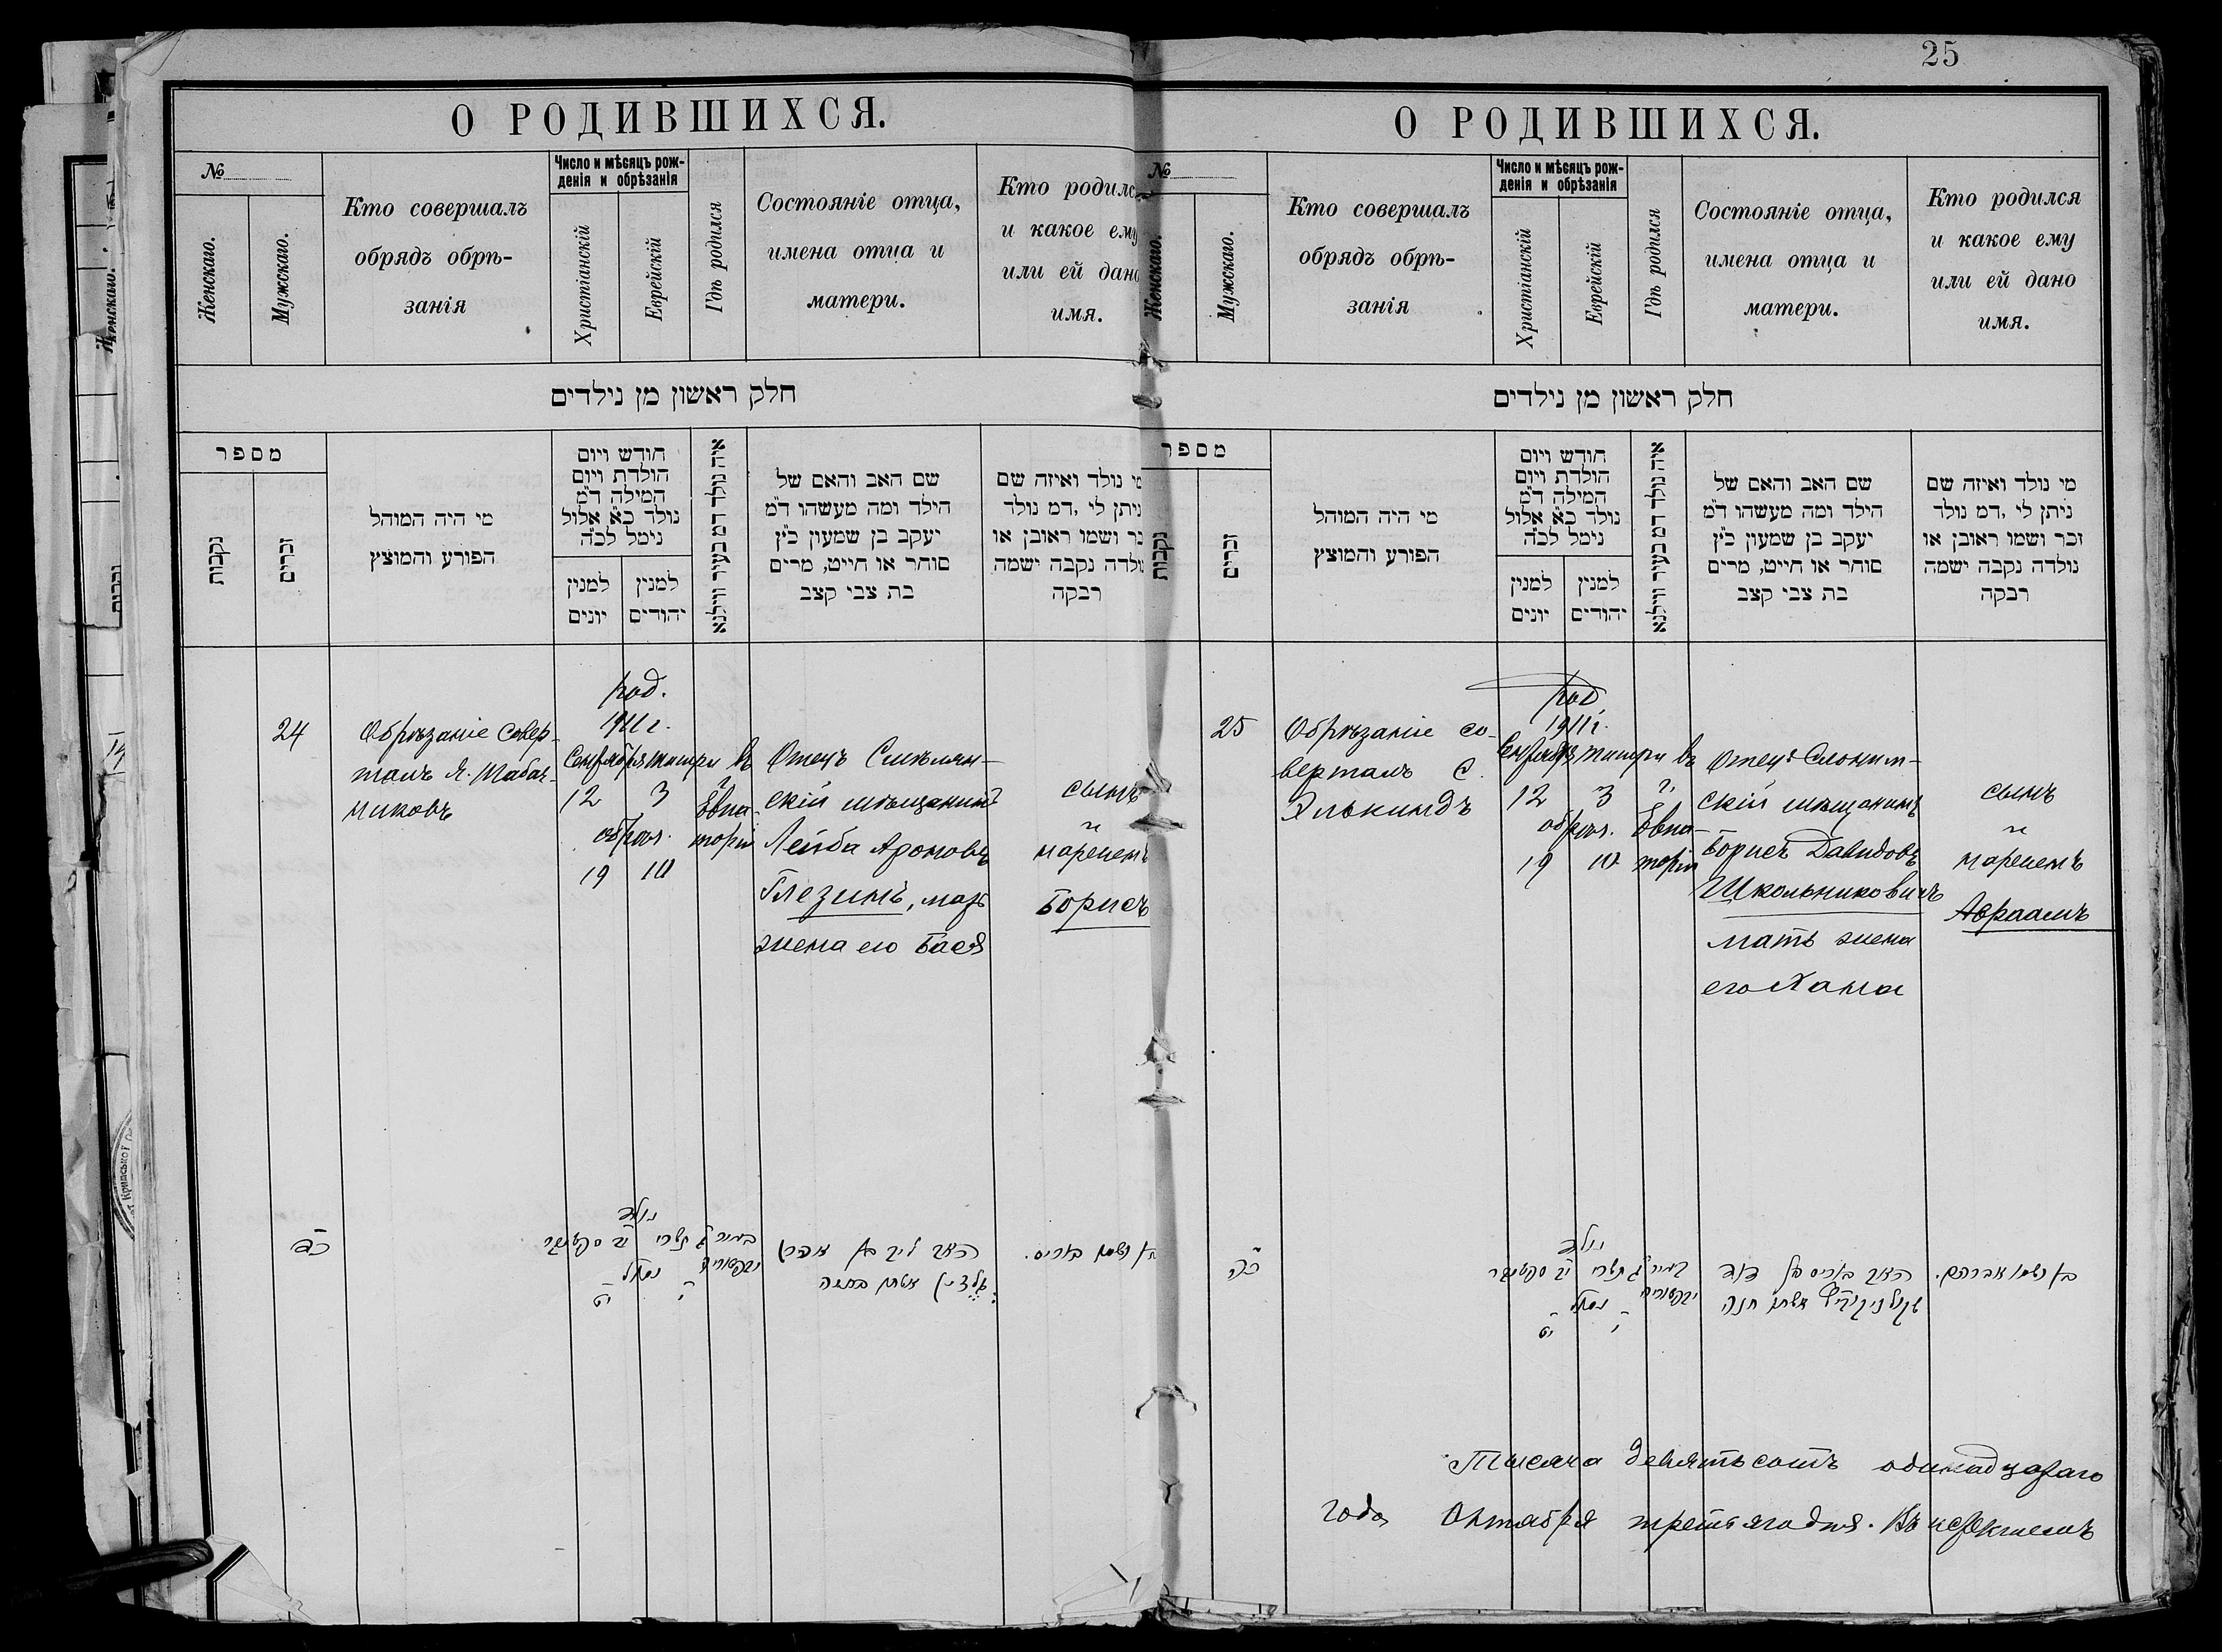 25
О РОДИВШИХСЯ.
№
Женскаго.
Мужскаго.
Кто совершалъ
обрядъ обрѣ-
занія
Число и мѣсяцъ рож-
денія и обрѣзанія
Христіанскій
Еврейскій
Гдѣ родился
Состояніе отца,
имена отца и
матери.
Кто родилс
и какое ему
или ей дано
имя.
חלק ראשון מן נילדים
מספר
נקבות
זכרים
מי היה המוהל
הפורע והמוצץ
חודש ויום
הולדת ויום
המילה ד״מ
נולד כ״א אלול
נימל לכ״ה
למנין
יונים
למנין
יהודים
איה נולד דמ בעיר ווילנא
שם האב והאם של
הילד ומה מעשהו ד״מ
יעקב בן שמעון כ״ץ
סוחר או חייט, מרים
בת צבי קצב
מי נולד ואיזה שם
ניתן לי, דמ נולד
זכר ושמו ראובן או
נולדה נקבה ישמה
רבקה
24
Обрѣзаніе совер-
шалъ Я. Табач-
никовъ
род.
1911 г.
Сентября тишри въ
12 3 г.
Евпа-
обрѣз. торіи
19 10
Отецъ Смѣлян-
скій мѣщанинъ
Лейба Ароновъ
Глезинъ, мать
жена его Бася
сынъ
и
нареченъ
Борисъ
כד
נולד
בעיר ג תשרי יב סקטעבר
נמול
י יט
האב ליב בן אהרן
אשתו באשה
בן ושמו בוריס.
О РОДИВШИХСЯ.
№
Женскаго.
Мужскаго.
Кто совершалъ
обрядъ обрѣ-
занія
Число и мѣсяцъ рож-
денія и обрѣзанія
Христіанскій
Еврейскій
Гдѣ родился
Состояніе отца,
имена отца и
матери.
Кто родился
и какое ему
или ей дано
имя.
חלק ראשון מן נילדים
מספר
נקבות
זכרים
מי היה המוהל
הפורע והמוצץ
חודש ויום
הולדת ויום
המילה ד״מ
נולד כ״א אלול
נימל לכ״ה
למנין
יונים
למנין
יהודים
איה נולד דמ בעיר ווילנא
שם האב והאם של
הילד ומה מעשהו ד״מ
יעקב בן שמעון כ״ץ
סוחר או חייט, מרים
בת צבי קצב
מי נולד ואיזה שם
ניתן לי, דמ נולד
זכר ושמו ראובן או
נולדה נקבה ישמה
רבקה
25
Обрѣзаніе со-
вершалъ С.
Элькиндъ
род
1911 г.
Сентября тишри въ
12 3 г.
обрѣз. Евпа-
19 10 торіи
Отецъ Слоним-
скій мѣщанинъ
Борисъ Давидовъ
Школьниковичъ
мать жена
его Хана
сынъ
и
нареченъ
Авраамъ
כה
נולד
בעיר ג תשרי יב סקטעבר
נמול
י יט
האב בוריס בן דוד
שקולניקוביץ אשתו חנה
בן ושמו אברהם.
Тысяча девятьсотъ одинадцатаго
года Октября третьяго дня. Въ